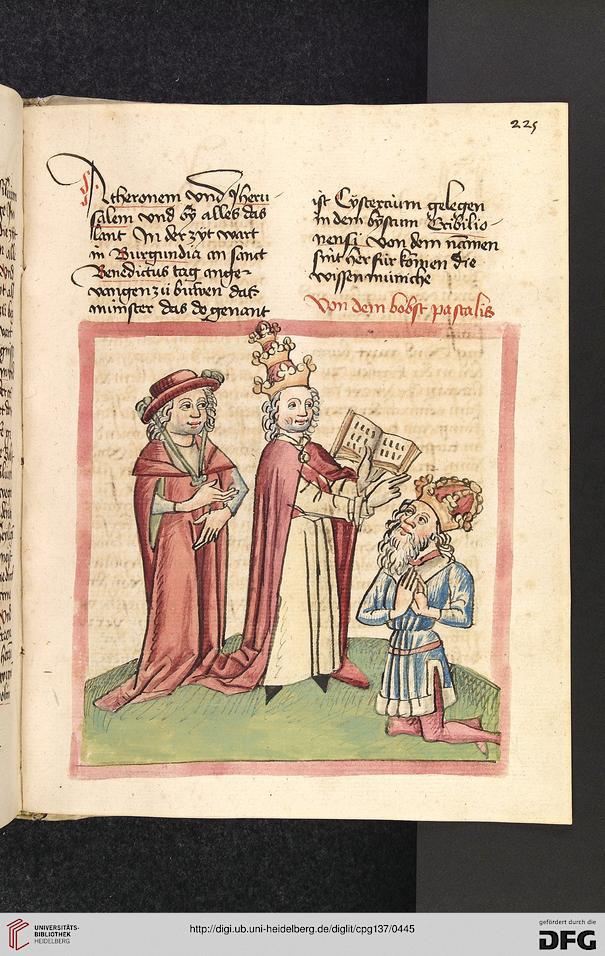 225
Atheronem vnd Jheru
salem vnd by alles das
lant In der zyt wart
in Burgundia an sanct
Benedictus tag ange
vangen zu buwen das
munster das do genant
ist Cystercium gelegen
in dem bystum Cribilio
nensi Von dem namen
sint her für komen die
wissen münche
Von dem bobst pascalis
UNIVERSITÄTS-
BIBLIOTHEK
HEIDELBERG
http://digi.ub.uni-heidelberg.de/diglit/cpg137/0445
gefördert durch die
DFG